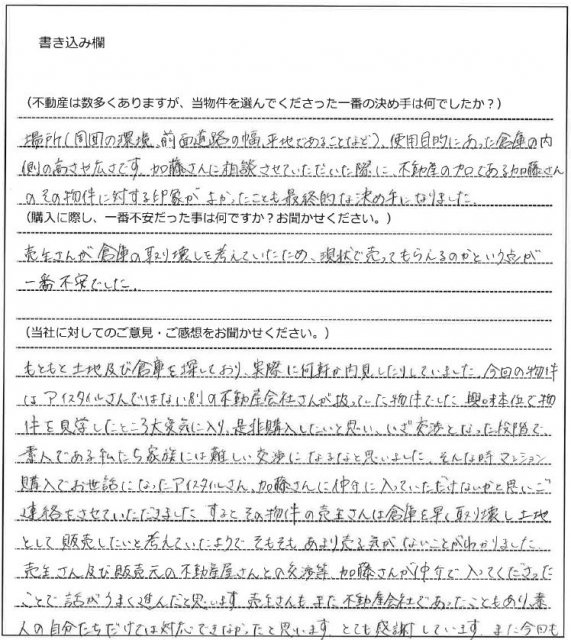 書き込み欄
（不動産は数多くありますが、当物件を選んでくださった一番の決め手は何でしたか？）
場所（周囲の環境、前面道路の幅、平地であることなど）、使用目的にあった倉庫の内
側の高さや広さです。加藤さんに相談させていただいた際に、不動産のプロである加藤さん
のその物件に対する印象がよかったことも最終的な決め手になりました。
（購入に際し、一番不安だった事は何ですか？お聞かせください。）
売主さんが倉庫の取り壊しを考えていたため、現状で売ってもらえるのかという点が
一番不安でした。
（当社に対してのご意見・ご感想をお聞かせください。）
もともと土地及び倉庫を探しており、実際に何軒か内見したりしていました。今回の物件
は、アイスタイルさんではない別の不動産会社さんが扱っていた物件でした。興味本位で物
件を見学したところ大変気に入り、是非購入したいと思い、いざ交渉となった段階で、
素人である私たち家族には難しい交渉になるなと思いました。そんな時マンション
購入でお世話になったアイスタイルさん、加藤さんに仲介に入っていただけないかと思いご
連絡をさせていただきました。するとその物件の売主さんは倉庫を早く取り壊し土地
として販売したいと考えていたようで そもそも あまり売る気がないことがわかりました。
売主さん及び販売元の不動産屋さんとの交渉等、加藤さんが仲介で入ってくださった
ことで話がうまく進んだと思います。売主さんもまた不動産会社であったこともあり、素
人の自分たちだけでは対応できなかったと思います。とても感謝しています。また今回も